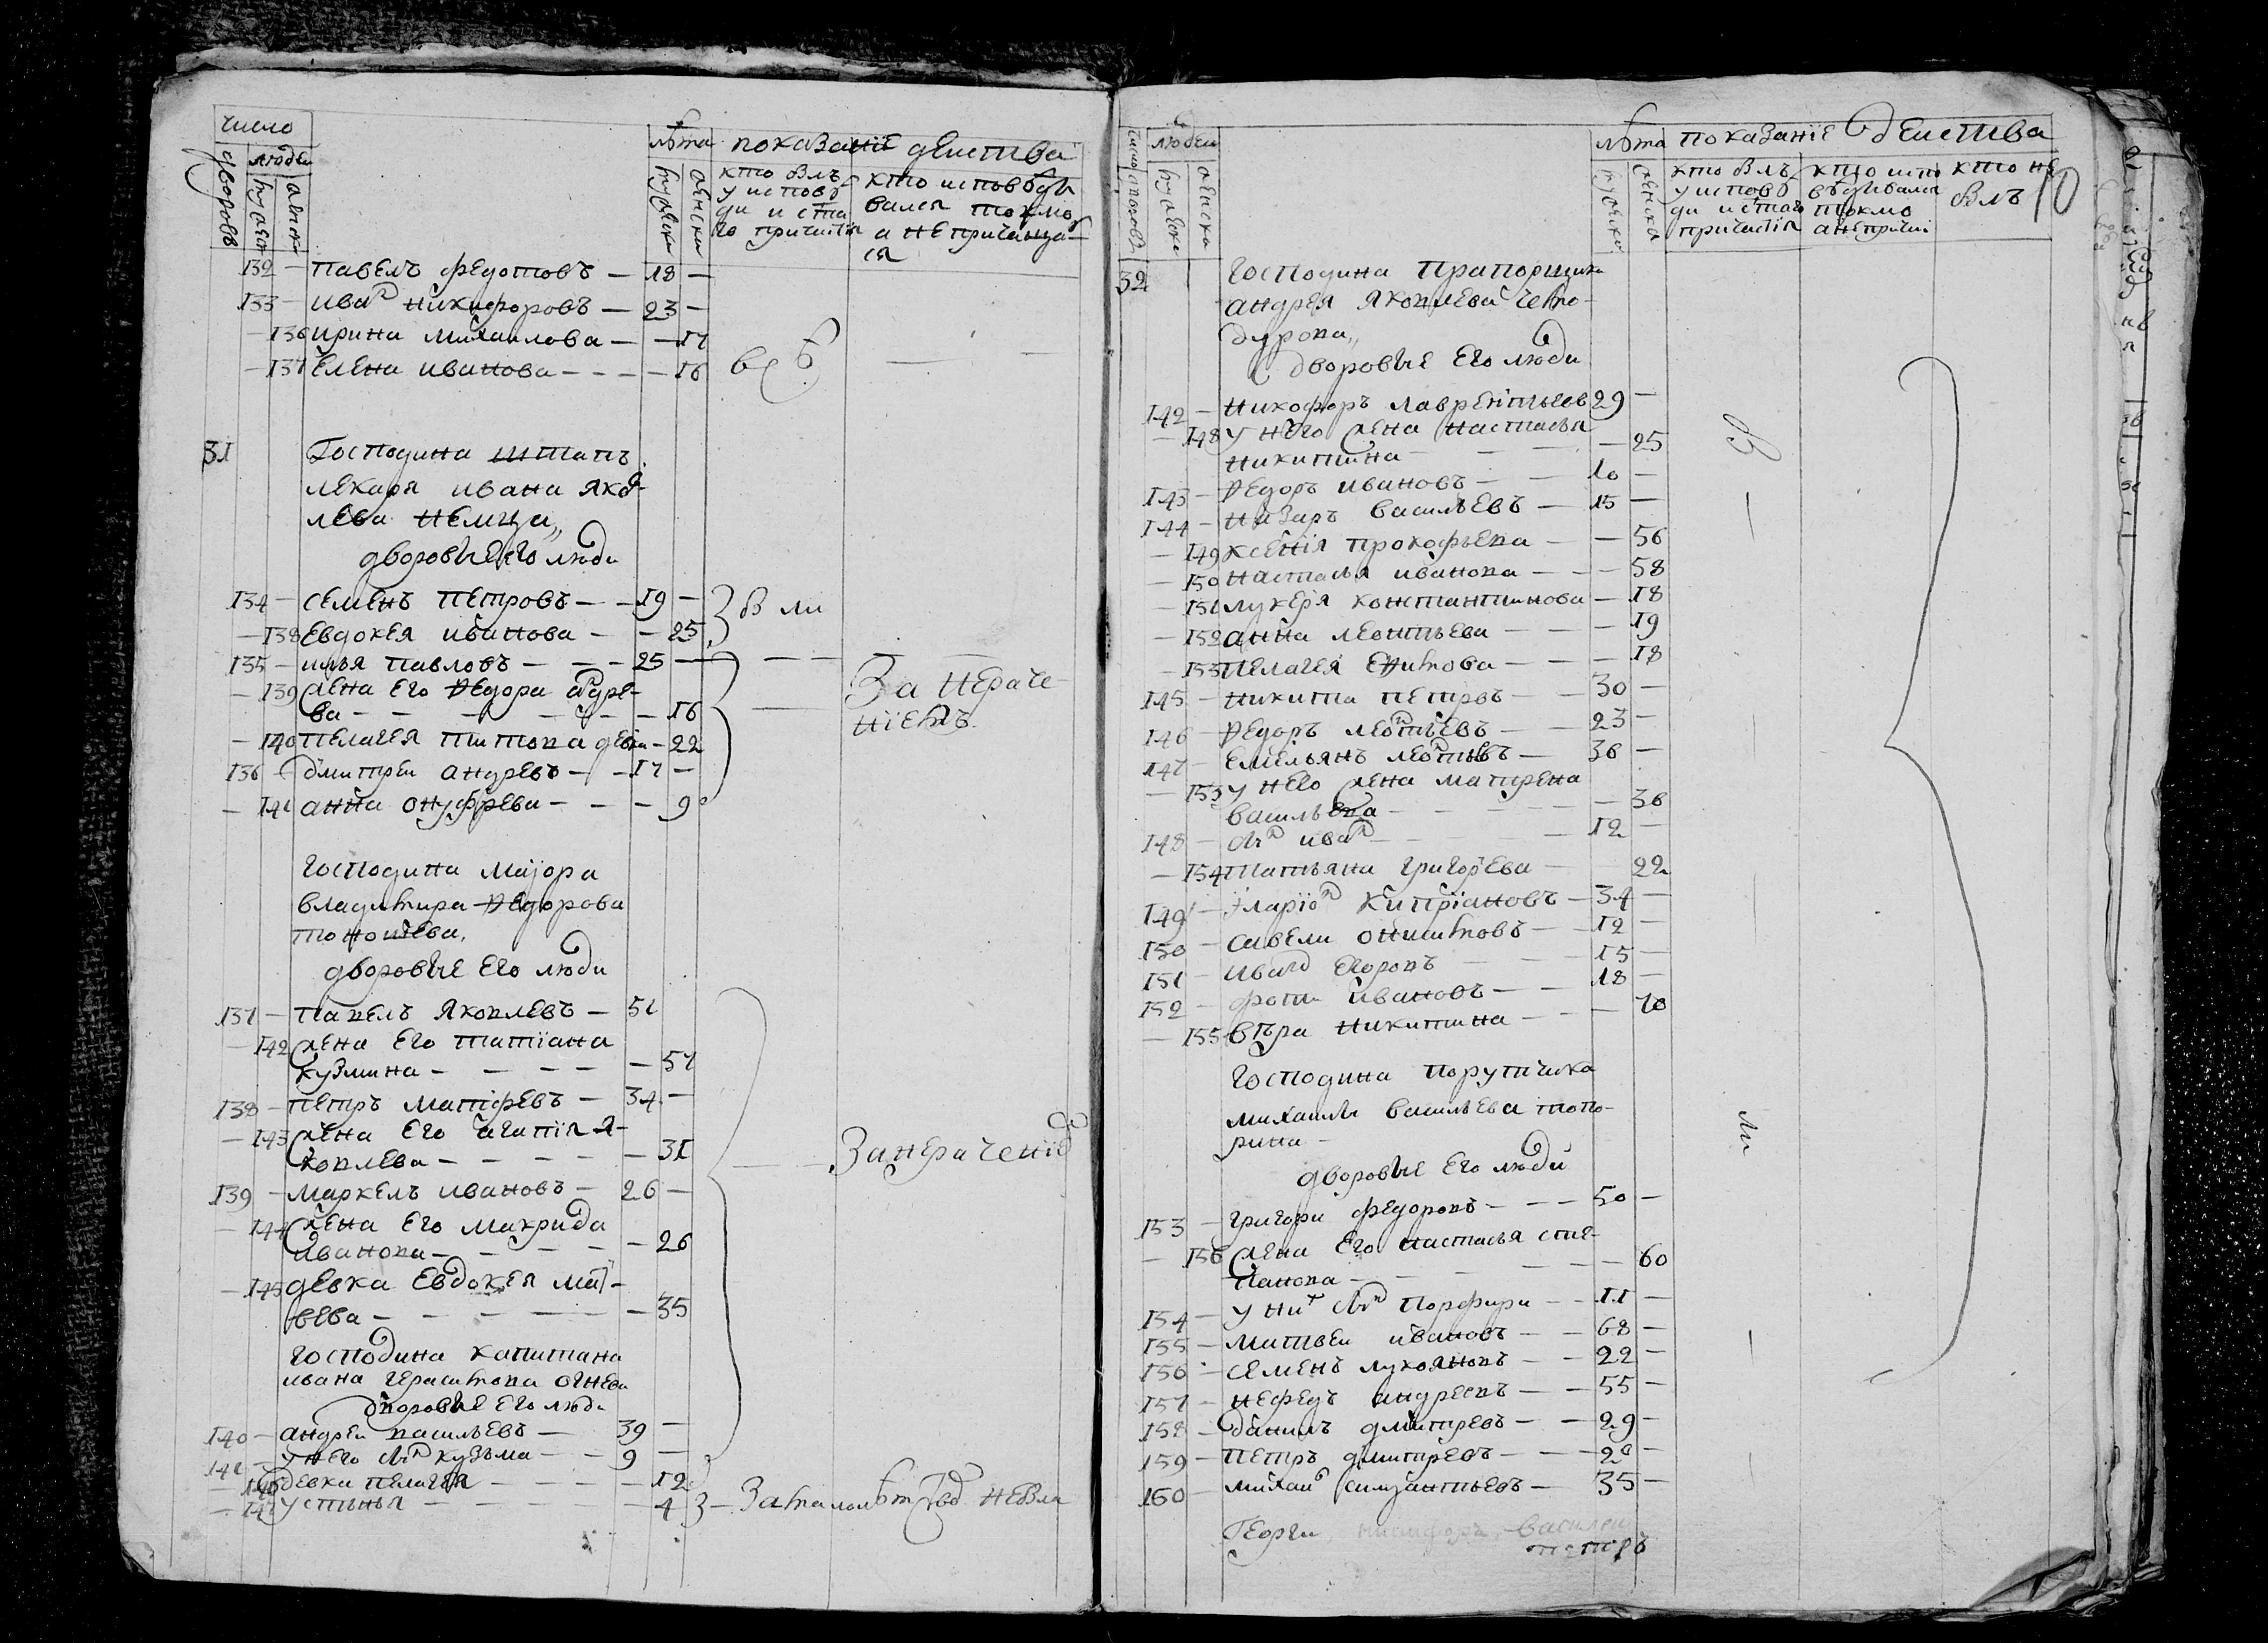 число
лѣта показание действа
дворовъ
людеи
мужеска
женска
кто былъ
у исповѣ
ди и ста
го причастїя
кто исповѣды
вался токмо
а не причаща
ся
132 — павелъ федотовъ — 18 —
133 — ива н никифоровъ — 23 —
— 136 ирина михаилова — — 17
— 137 елена иванова — — — — 16
31 Господина штапъ
лекаря ивана яков
лева немца,,
дворовые его люди
134 — семенъ петровъ — — 19 — были
— 138 евдокея иванова — — 25
135 — илья павловъ — — — 25 —
— 139 жена его федора андре-
ва — — — — — — 16
за нераче
нїемъ
— 140 пелагея титова девка — 22
136 — дмитреи андревъ — — 17 —
— 141 анна онуфрева — — — 9
господина маіора
владимира федорова
дворовые его люди
137 — павелъ яковлевъ — 51
— 142 жена его татїана
кузмина — — — — — 57
138 — петръ матфевъ — 34 —
— 143 жена его агапїя я-
ковлева — — — — — 31
за нераченїе
139 — маркелъ ивановъ — 26 —
— 144 жена его макрида
иванова — — — — — 26
— 145 девка евдокея мат-
вева — — — — — — 35
господина капитана
ивана герасимова огнева
дворовые его люди
140 — андреи васильевъ — 39 —
141 — у него снъ кузьма — — 9 —
— 146 девка пелагея — — — — 12
— 147 устинья — — — — — 4 — за малолѣт не были
число дворовъ
людеи
мужеска
женска
лѣта показанїе действа
кто былъ
у исповѣ
ди и стаго
причастїя
кто испо
вѣдывался
токмо
а не причащ
кто не
былъ
10
32 господина прапорщика
андрея яковлева чемо-
дурова,,
дворовые его люди
142 — никофоръ лаврентьевъ 29 —
— 148 у него жена настасья
никитина — — — — 25
143 — федоръ ивановъ — — 10 —
144 — назаръ васильевъ — 15 —
— 149 ксенїя прокофьева — — 56
— 150 настасья иванова — — — 58
— 151 лукеря константинова — 18
— 152 анна леонтьева — — — — 19
— 153 пелагея ефимова — — — 18
145 — никита петровъ — — 30 —
146 — федоръ леонтьевъ — — 23 —
147 — емельянъ леонтьевъ — 36 —
— 153 у него жена матрена
васильева — — — — 36
148 — снъ иванъ — — — — 12 —
— 154 татьяна григорева — 22
149 — іларїонъ кипріановъ — 34 —
150 — савели онисимовъ — — 12 —
151 — иванъ егоровъ — — — 15 —
152 — фоти ивановъ — — 18 —
— 155 вѣра никитина — — — 70
господина порутчика
михаилы васильева топо-
рина —
дворовые его люди
153 — григори федоровъ — — — 50 —
— 156 жена его настасья сте-
панова — — — — — — 60
154 — у них снъ порфири — — 11 —
155 — матвеи ивановъ — — 68 —
156 — семенъ лукояновъ — — 22 —
157 — нефедъ андреевъ — — 55 —
158 — данилъ дмитревъ — — 29 —
159 — петръ дмитревъ — — —
160 — михаи — 35 —
георги никифоръ василеи
петръ